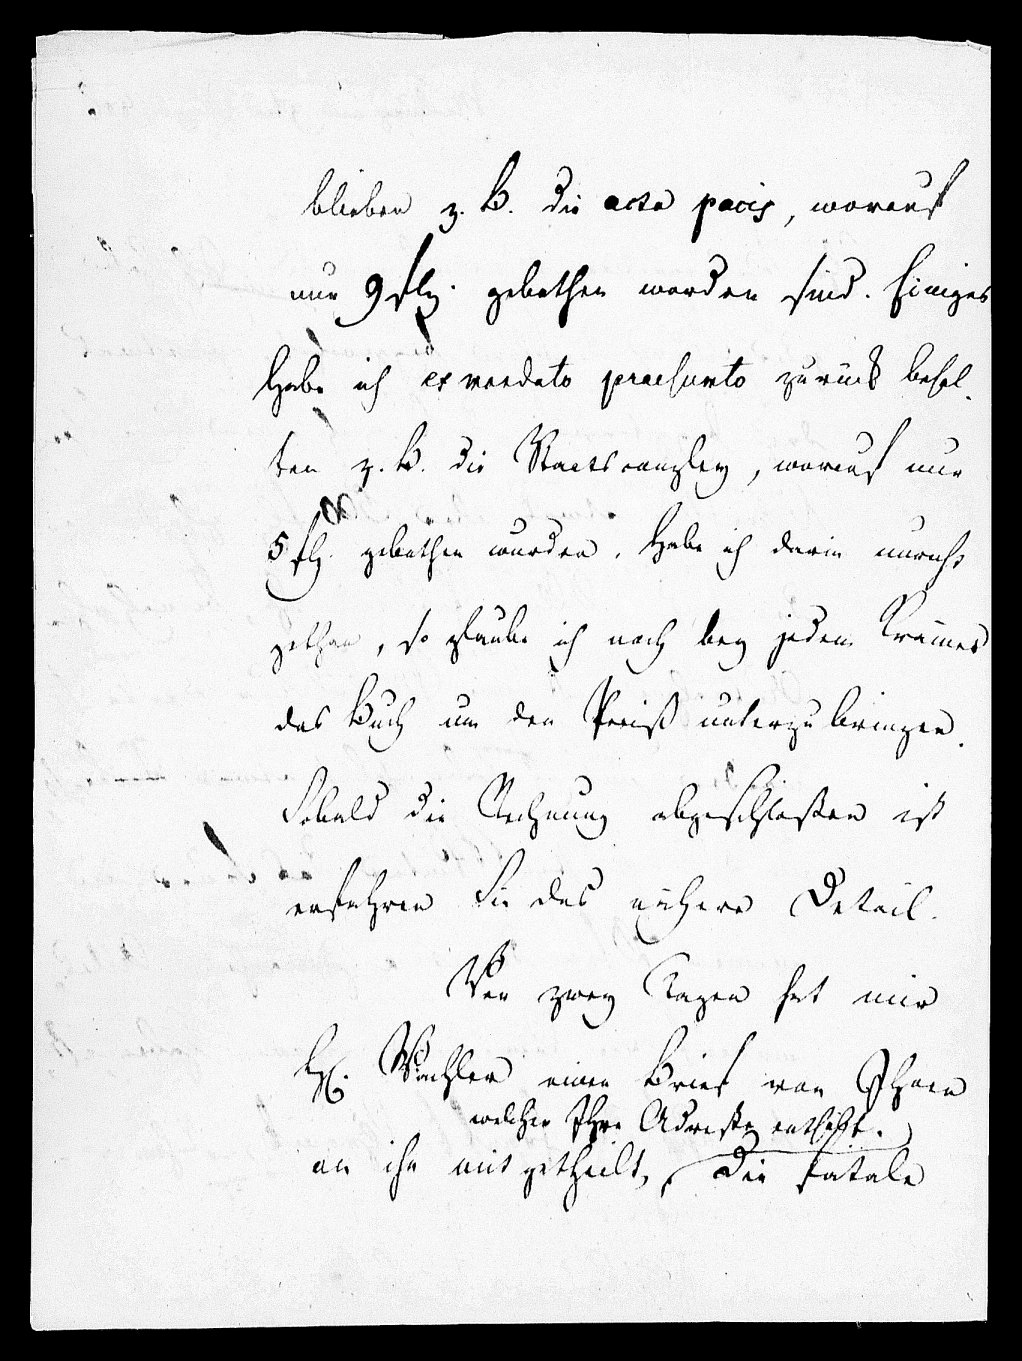 blieben z. B. die acta pacis, worauf
nur 9 flz. gebothen worden sind. Einiges
Habe ich ex mandato praesumto zurück behal-
ten z. B. die Staatscanzley, worauf nur
5 flz. gebothen wurden. Habe ich darin unrecht
gethan, so glaube ich noch bey jedem Krämer
das Buch um den Preiß unterzubringen.
Sobald die Rechnung abgeschloßen ist
erfahren Sie das nähere Detail.
Vor zwey Tagen hat mir
H. Wachler einen Brief von Ihnen
welcher Ihre Adreße enthielt.
an ihn mitgetheilt, Die fatale